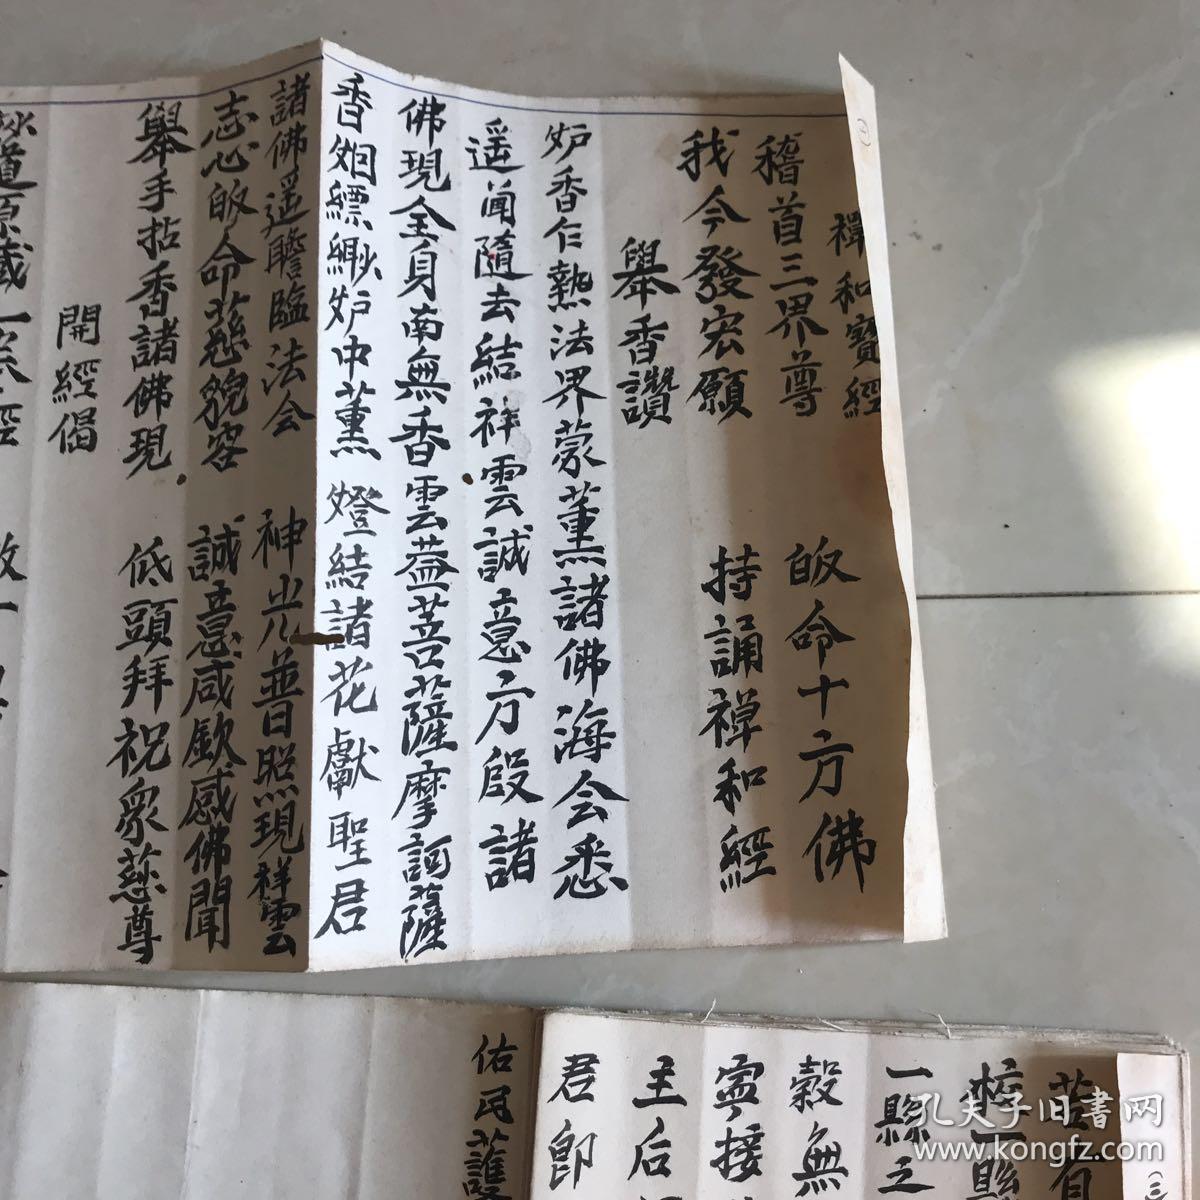 禪和寶經
稽首三界尊 皈命十方佛
我今發宏願 持誦禪和經
舉香讚
炉香乍熱法界蒙薰諸佛海会悉
遥闻隨去結祥雲誠意方殷諸
佛現全身南無香雲蓋菩薩摩訶薩
香烟縹緲炉中薰 燈結諸花獻聖君
諸佛遥瞻臨法会 神光普照現祥雲
志心皈命慈貌容 誠意咸欽感佛聞
舉手拈香諸佛現 低頭拜祝眾慈尊
開經偈
君郎
主后
寧接
穀無
一縣之
佑民護
孔夫子旧書网
www.kongfz.com